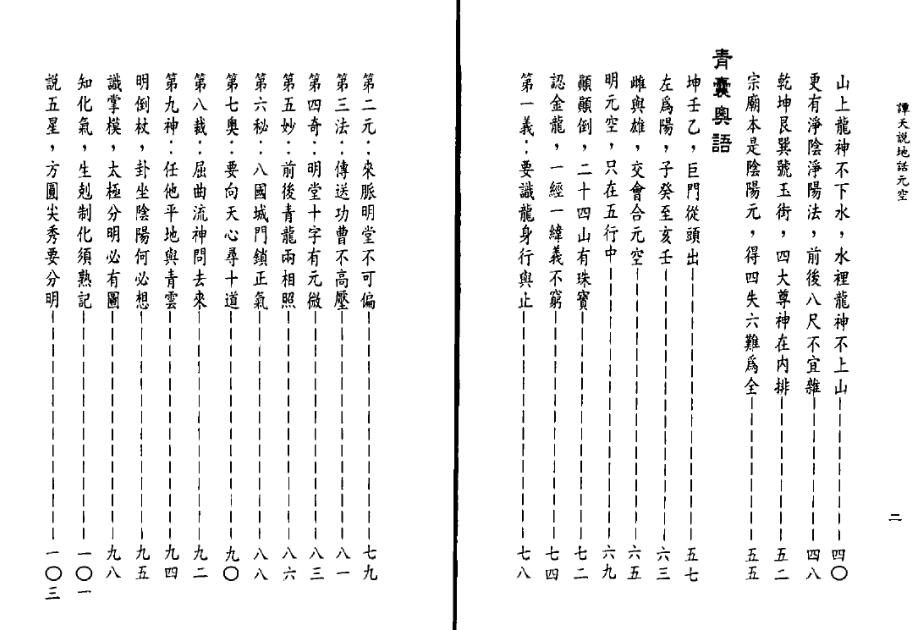 譚天說地話元空
二
山上龍神不下水，水裡龍神不上山————————四〇
更有淨陰淨陽法，前後八尺不宜雜————————四八
乾坤艮巽號玉街，四大尊神在內排————————五二
宗廟本是陰陽元，得四失六難爲全————————五五
青囊奧語
坤壬乙，巨門從頭出————————五七
左爲陽，子癸至亥壬————————六三
雌與雄，交會合元空————————六五
明元空，只在五行中————————六九
顚顚倒，二十四山有珠寶————————七二
認金龍，一經一緯義不窮————————七四
第一義：要識龍身行與止————————七八
第二元：來脈明堂不可偏————————七九
第三法：傳送功曹不高壓————————八一
第四奇：明堂十字有元微————————八三
第五妙：前後青龍兩相照————————八六
第六秘：八國城門鎖正氣————————八八
第七奧：要向天心尋十道————————九〇
第八裁：屈曲流神問去來————————九二
第九神：任他平地與青雲————————九四
明倒杖，卦坐陰陽何必想————————九五
識掌模，太極分明必有圖————————九八
知化氣，生剋制化須熟記————————一〇一
說五星，方圓尖秀要分明————————一〇三